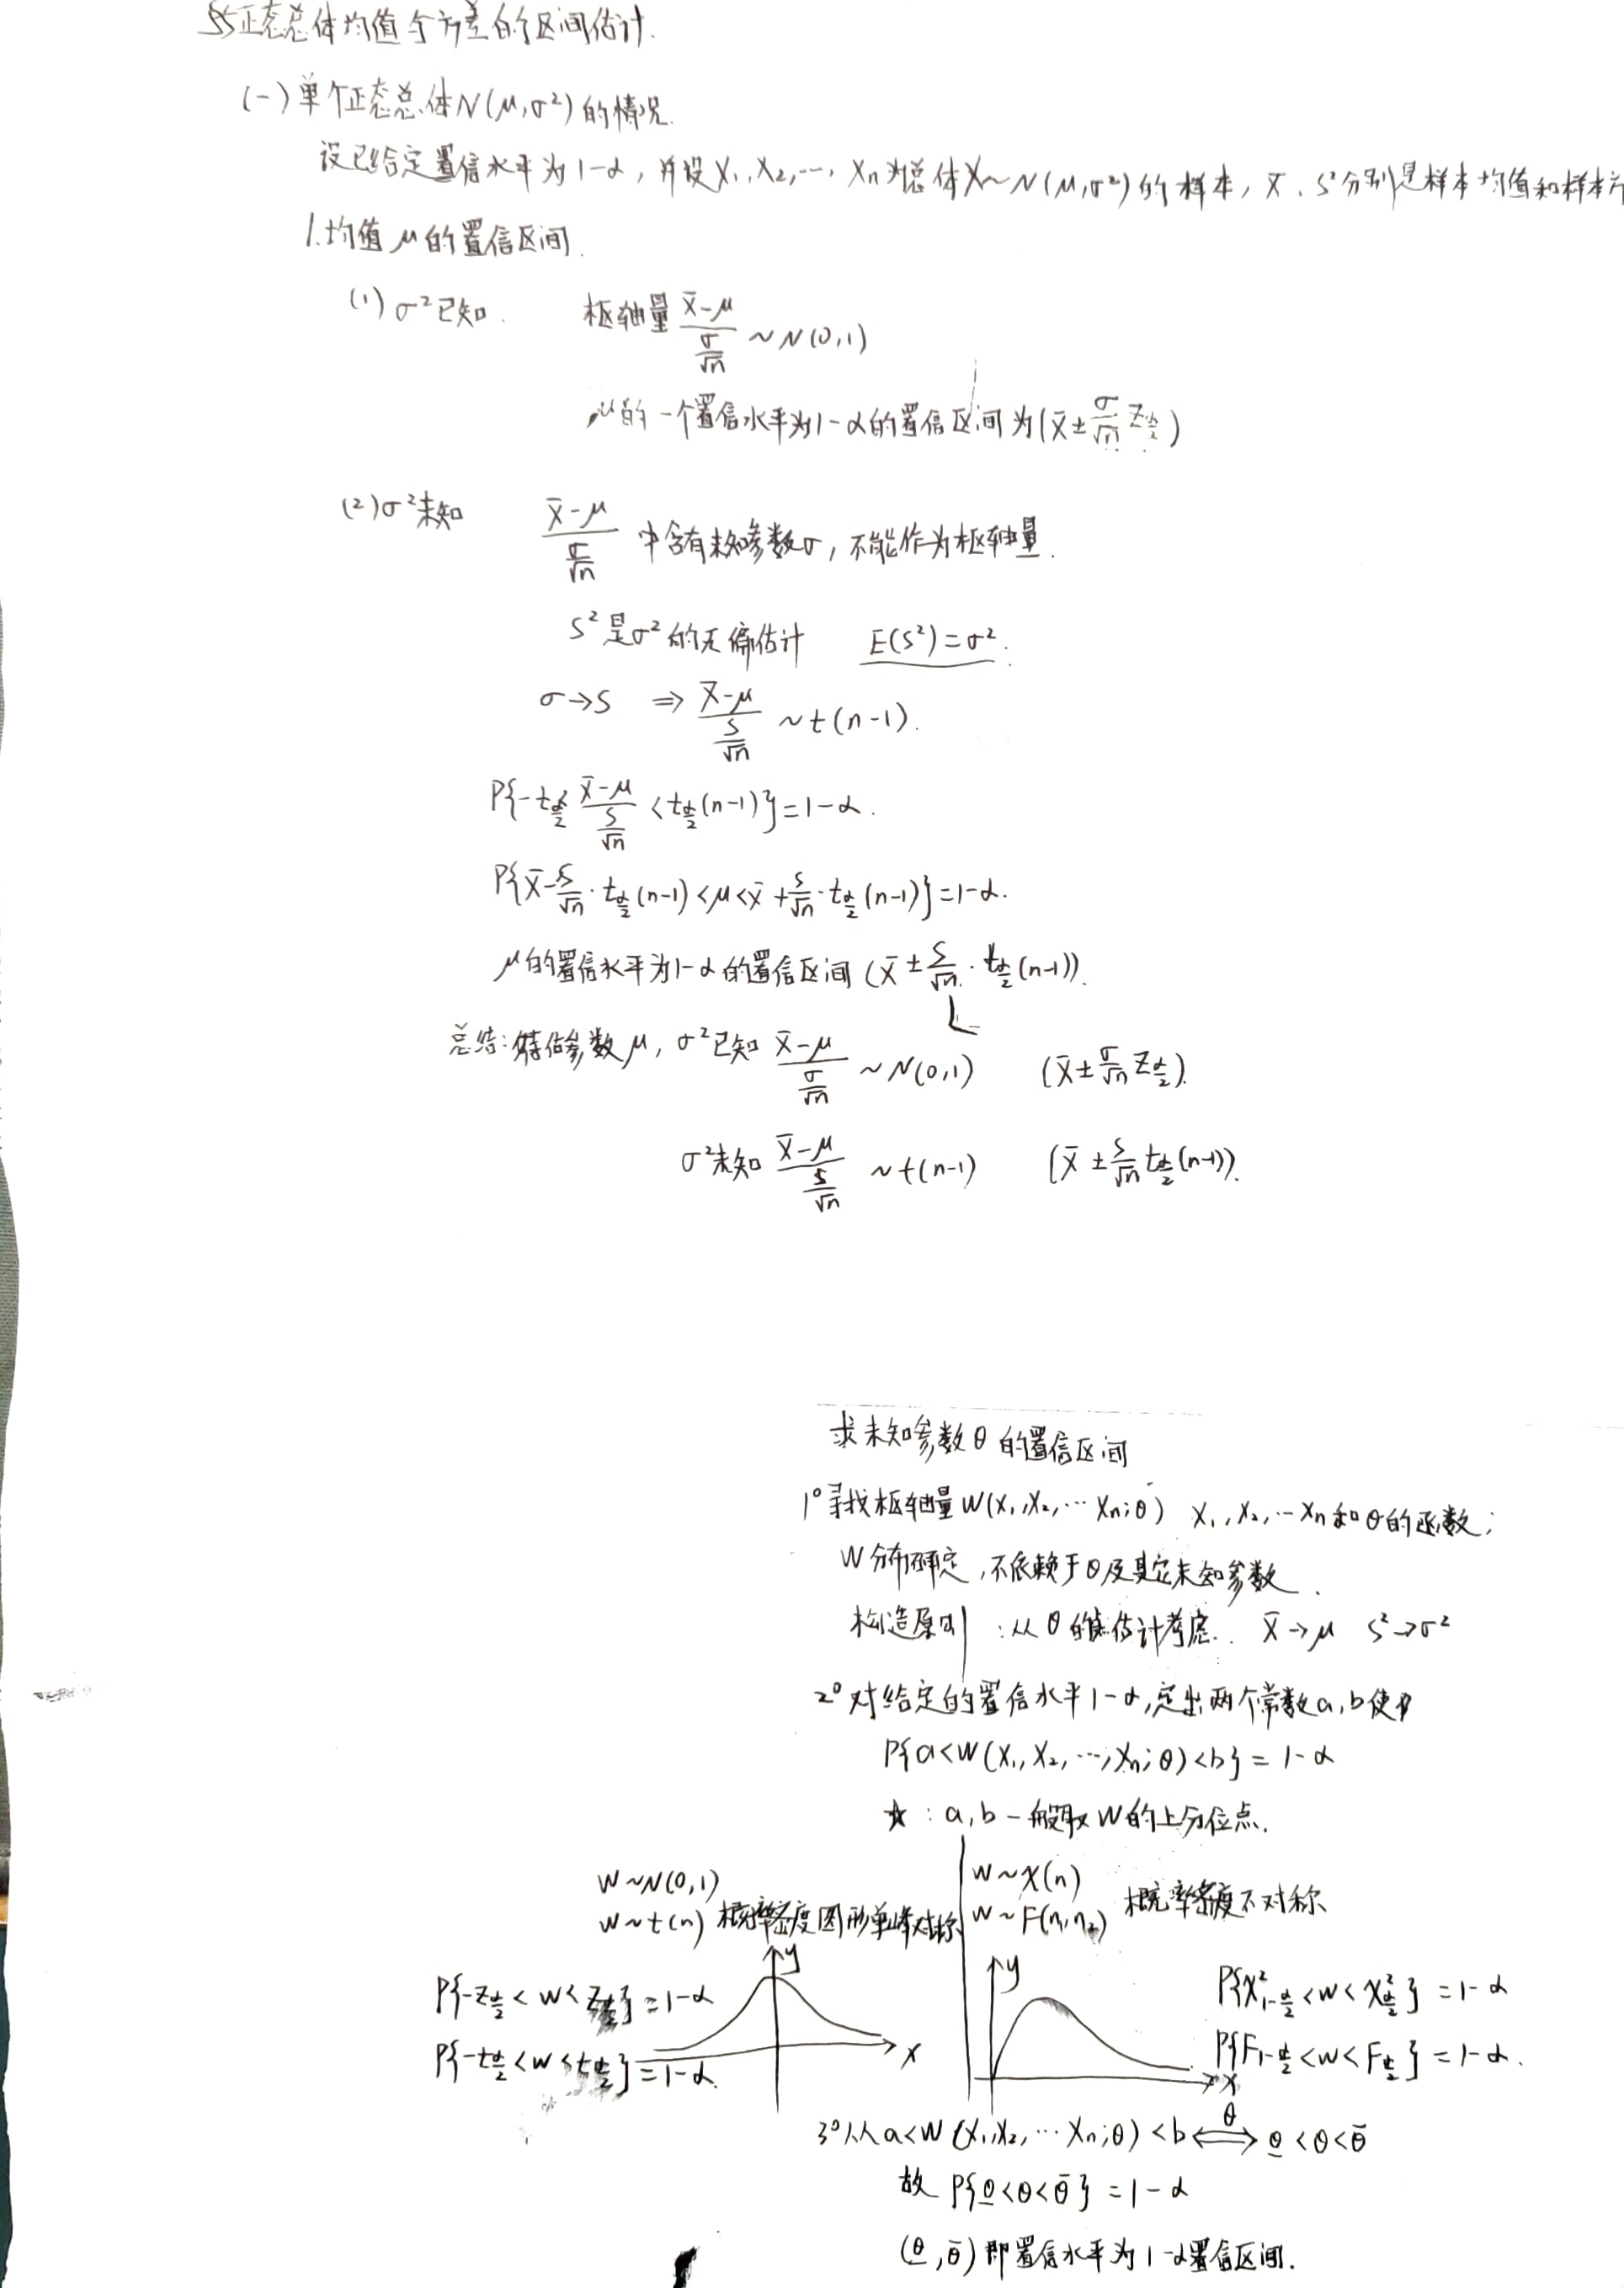 §5正态总体均值与方差的区间估计.
(一)单个正态总体N(μ,σ²)的情况.
设已给定置信水平为1-α, 并设X₁,X₂,…,Xn为总体X~N(μ,σ²)的样本, X̄、S²分别是样本均值和样本方
1.均值μ的置信区间.
(1)σ²已知. 枢轴量 (X̄-μ)/(σ/√n) ~N(0,1)
μ的一个置信水平为1-α的置信区间为(X̄±σ/√n z_{α/2})
(2)σ²未知 (X̄-μ)/(σ/√n) 中含有未知参数σ, 不能作为枢轴量.
S²是σ²的无偏估计 E(S²)=σ².
σ→S ⇒ (X̄-μ)/(S/√n) ~t(n-1).
P{-t_{α/2}< (X̄-μ)/(S/√n) <t_{α/2}(n-1)}=1-α.
P{X̄-S/√n·t_{α/2}(n-1)<μ<X̄+S/√n·t_{α/2}(n-1)}=1-α.
μ的置信水平为1-α的置信区间(X̄±S/√n·t_{α/2}(n-1)).
总结:待估参数μ, σ²已知 (X̄-μ)/(σ/√n) ~N(0,1) (X̄±σ/√n z_{α/2}).
σ²未知 (X̄-μ)/(S/√n) ~t(n-1) (X̄±S/√n t_{α/2}(n-1)).
求未知参数θ的置信区间
1°寻找枢轴量W(X₁,X₂,…Xn;θ) X₁,X₂,…Xn和θ的函数;
W分布确定,不依赖于θ及其它未知参数.
构造原则:从θ的点估计考虑. X̄→μ S²→σ²
2°对给定的置信水平1-α,定出两个常数a,b使
P{a<W(X₁,X₂,…,Xn;θ)<b}=1-α
☆:a,b一般取W的上分位点.
W~N(0,1)
W~t(n) 概率密度图形单峰对称
W~χ(n)
W~F(n₁,n₂) 概率密度不对称
y
x
P{-z_{α/2}<W<z_{α/2}}=1-α
P{-t_{α/2}<W<t_{α/2}}=1-α.
y
x
P{χ²_{1-α/2}<W<χ²_{α/2}}=1-α
P{F_{1-α/2}<W<F_{α/2}}=1-α.
3°从a<W(X₁,X₂,…Xn;θ)<b ⟺θ θ̲<θ<θ̄
故 P{θ̲<θ<θ̄}=1-α
(θ̲,θ̄)即置信水平为1-α置信区间.